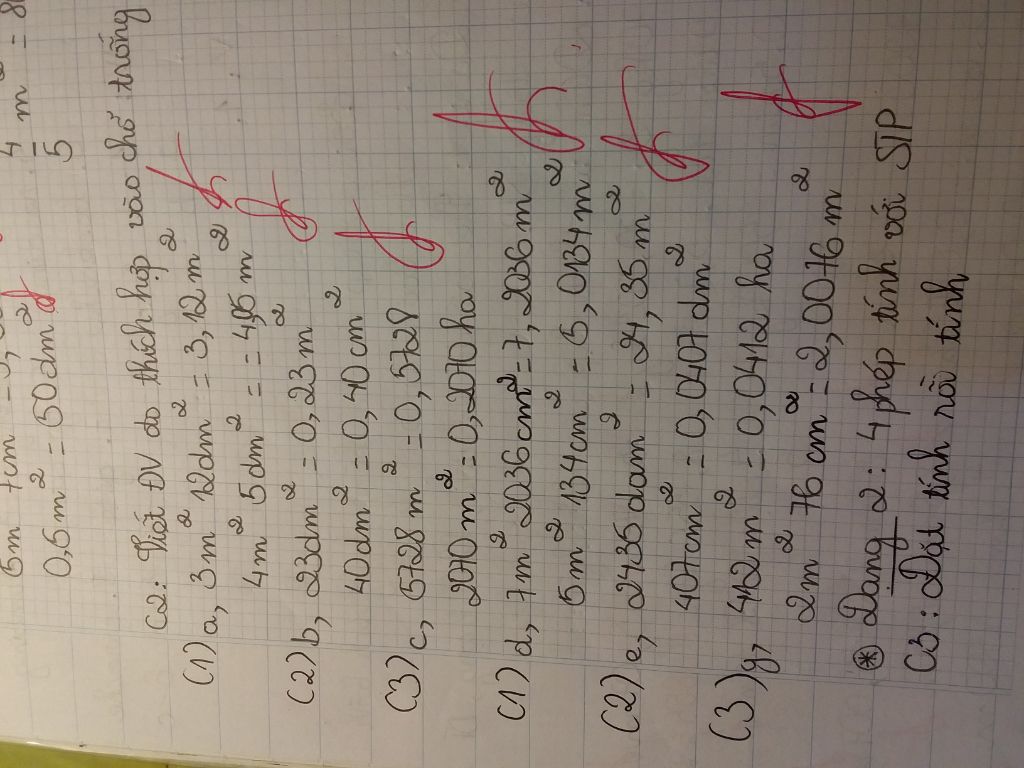 5m 7cm =
0,5m² = 50dm²
4/5 m² = 80
C2: Viết ĐV đo thích hợp vào chỗ trống
(1) a, 3m² 12dm² = 3,12m²
4m² 5dm² = = 4,05m²
(2) b, 23dm² = 0,23m²
40dm² = 0,40cm²
(3) c, 5728m² = 0,5728
2070m² = 0,2070ha
(1) d, 7m² 2036cm² = 7,2036m²
5m² 134cm² = 5,0134m²
(2) e, 2435dam² = 24,35m²
407cm² = 0,0407dm²
(3) g, 412m² = 0,0412 ha
2m² 76cm² = 2,0076m²
* Dạng 2: 4 phép tính với STP
C3: Đặt tính rồi tính